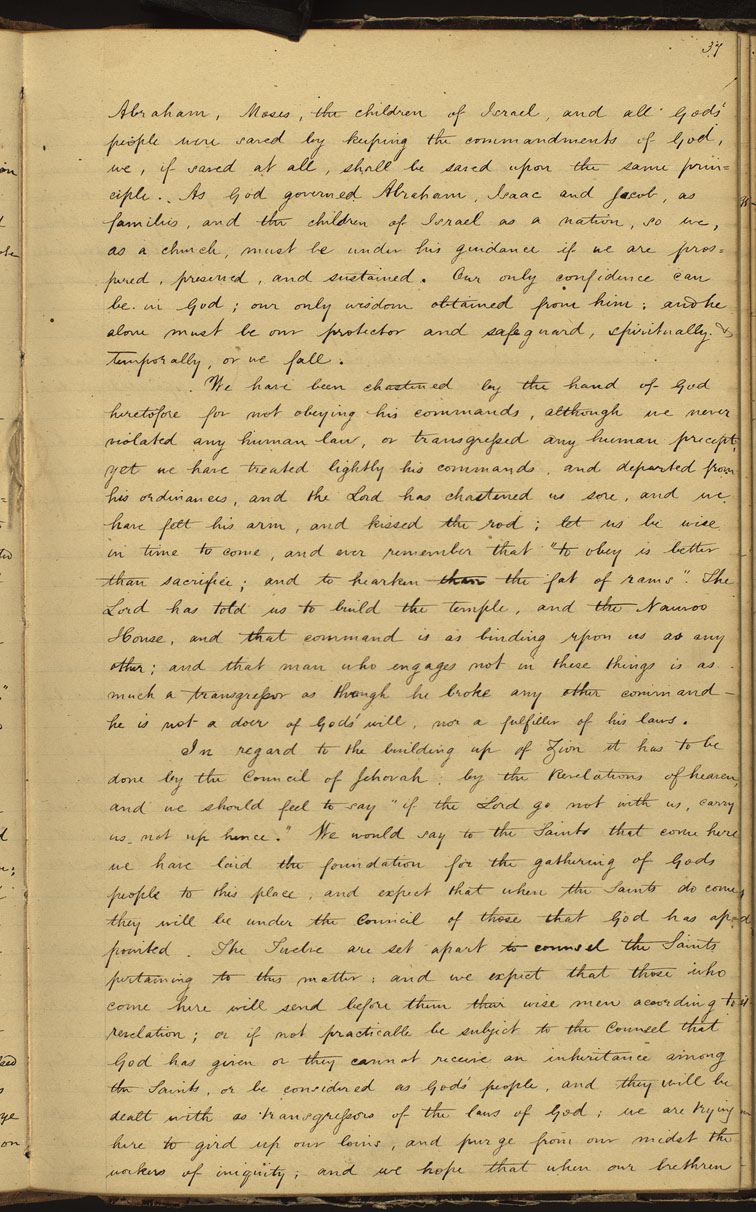 37
Abraham, Moses, the children of Israel, and all Gods'
people were saved by keeping the commandments of God,
we, if saved at all, shall be saved upon the same prin=
ciple. As God governed Abraham, Isaac and Jacob, as
families, and the children of Israel as a nation, so we,
as a church, must be under his guidance if we are pros=
pered, preserved, and sustained. Our only confidence can
be in God; our only wisdom obtained from him; and he
alone must be our protector and safeguard, spiritually &
temporally, or we fall.
We have been chastened by the hand of God
heretofore for not obeying his commands, although we never
violated any human law, or transgressed any human precept,
yet we have treated lightly his commands, and departed from
his ordinances, and the Lord has chastened us sore, and we
have felt his arm, and kissed the rod; let us be wise
in time to come, and ever remember that "to obey is better
than sacrifice; and to hearken than the fat of rams". The
Lord has told us to build the temple, and the Nauvoo
House, and that command is as binding upon us as any
other; and that man who engages not in these things is as
much a transgressor as though he broke any other command -
he is not a doer of Gods' will, nor a fulfiller of his laws.
In regard to the building up of Zion it has to be
done by the Council of Jehovah; by the Revelations of heaven,
and we should feel to say "if the Lord go not with us, carry
us not up hence." We would say to the Saints that come here
we have laid the foundation for the gathering of Gods
people to this place, and expect that when the Saints do come,
they will be under the Council of those that God has ap=
pointed. The Twelve are set apart to counsel the Saints
pertaining to this matter; and we expect that those who
come here will send before them their wise men according to
revelation; or if not practicable be subject to the Counsel that
God has given or they cannot receive an inheritance among
the Saints, or be considered as Gods' people, and they will be
dealt with as transgressors of the laws of God; we are trying
here to gird up our loins, and purge from our midst the
workers of iniquity; and we hope that when our brethren